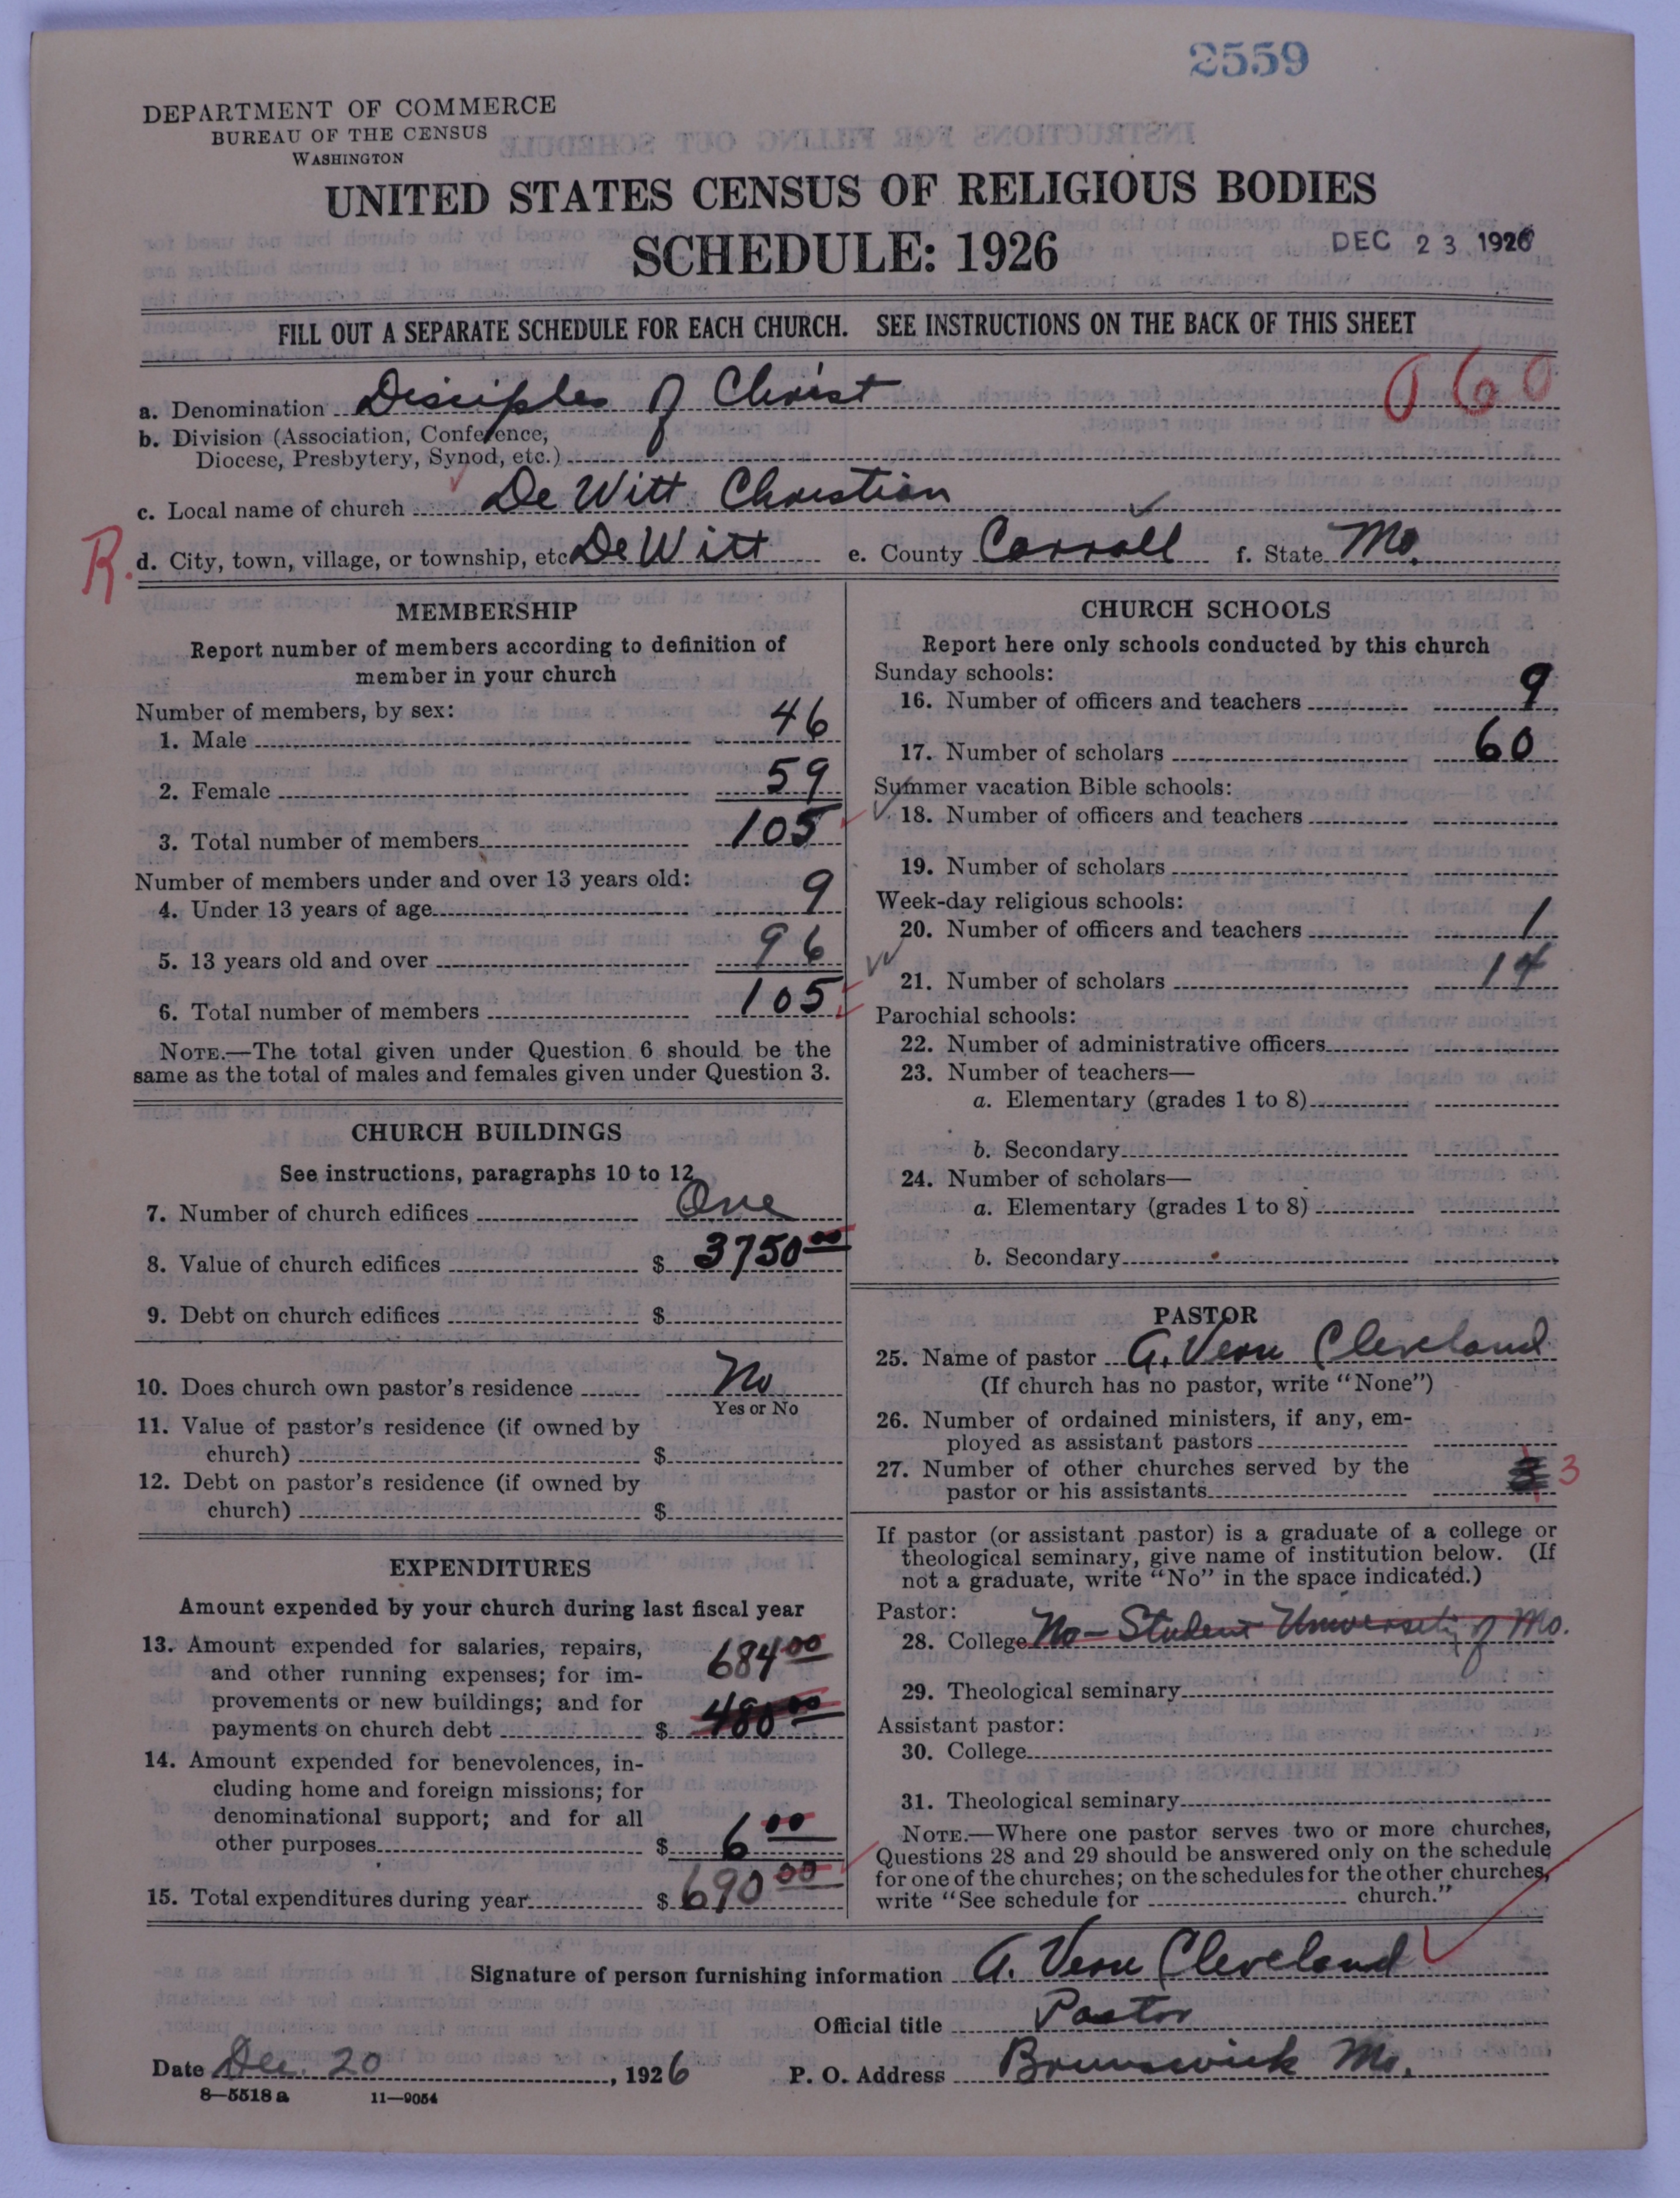 2559
DEPARTMENT OF COMMERCE
BUREAU OF THE CENSUS
WASHINGTON
UNITED STATES CENSUS OF RELIGIOUS BODIES
SCHEDULE: 1926
DEC 23 1926
FILL OUT A SEPARATE SCHEDULE FOR EACH CHURCH. SEE INSTRUCTIONS ON THE BACK OF THIS SHEET
060
a. Denomination Disciples of Christ
b. Division (Association, Conference,
Diocese, Presbytery, Synod, etc.)
c. Local name of church De Witt Christian
R. d. City, town, village, or township, etc. De Witt e. County Carroll f. State Mo.
MEMBERSHIP
Report number of members according to definition of
member in your church
Number of members, by sex:
1. Male 46
2. Female 59
3. Total number of members 105
Number of members under and over 13 years old:
4. Under 13 years of age 9
5. 13 years old and over 96
6. Total number of members 105
NOTE.—The total given under Question 6 should be the
same as the total of males and females given under Question 3.
CHURCH BUILDINGS
See instructions, paragraphs 10 to 12
7. Number of church edifices One
8. Value of church edifices $ 3750 00
9. Debt on church edifices $
10. Does church own pastor's residence No
Yes or No
11. Value of pastor's residence (if owned by
church) $
12. Debt on pastor's residence (if owned by
church) $
EXPENDITURES
Amount expended by your church during last fiscal year
13. Amount expended for salaries, repairs,
and other running expenses; for im-
provements or new buildings; and for
payments on church debt $ 684 00
480 00
14. Amount expended for benevolences, in-
cluding home and foreign missions; for
denominational support; and for all
other purposes $ 6 00
15. Total expenditures during year $ 690 00
CHURCH SCHOOLS
Report here only schools conducted by this church
Sunday schools:
16. Number of officers and teachers 9
17. Number of scholars 60
Summer vacation Bible schools:
18. Number of officers and teachers
19. Number of scholars
Week-day religious schools:
20. Number of officers and teachers 1
21. Number of scholars 14
Parochial schools:
22. Number of administrative officers
23. Number of teachers—
a. Elementary (grades 1 to 8)
b. Secondary
24. Number of scholars—
a. Elementary (grades 1 to 8)
b. Secondary
PASTOR
25. Name of pastor A. Vern Cleveland
(If church has no pastor, write "None")
26. Number of ordained ministers, if any, em-
ployed as assistant pastors
27. Number of other churches served by the
pastor or his assistants 3
If pastor (or assistant pastor) is a graduate of a college or
theological seminary, give name of institution below. (If
not a graduate, write "No" in the space indicated.)
Pastor:
28. College No - Student University of Mo.
29. Theological seminary
Assistant pastor:
30. College
31. Theological seminary
NOTE.—Where one pastor serves two or more churches,
Questions 28 and 29 should be answered only on the schedule
for one of the churches; on the schedules for the other churches,
write "See schedule for church."
Signature of person furnishing information A. Vern Cleveland
Official title Pastor
Date Dec. 20, 1926 P. O. Address Brunswick Mo.
8—5518 a 11—9054